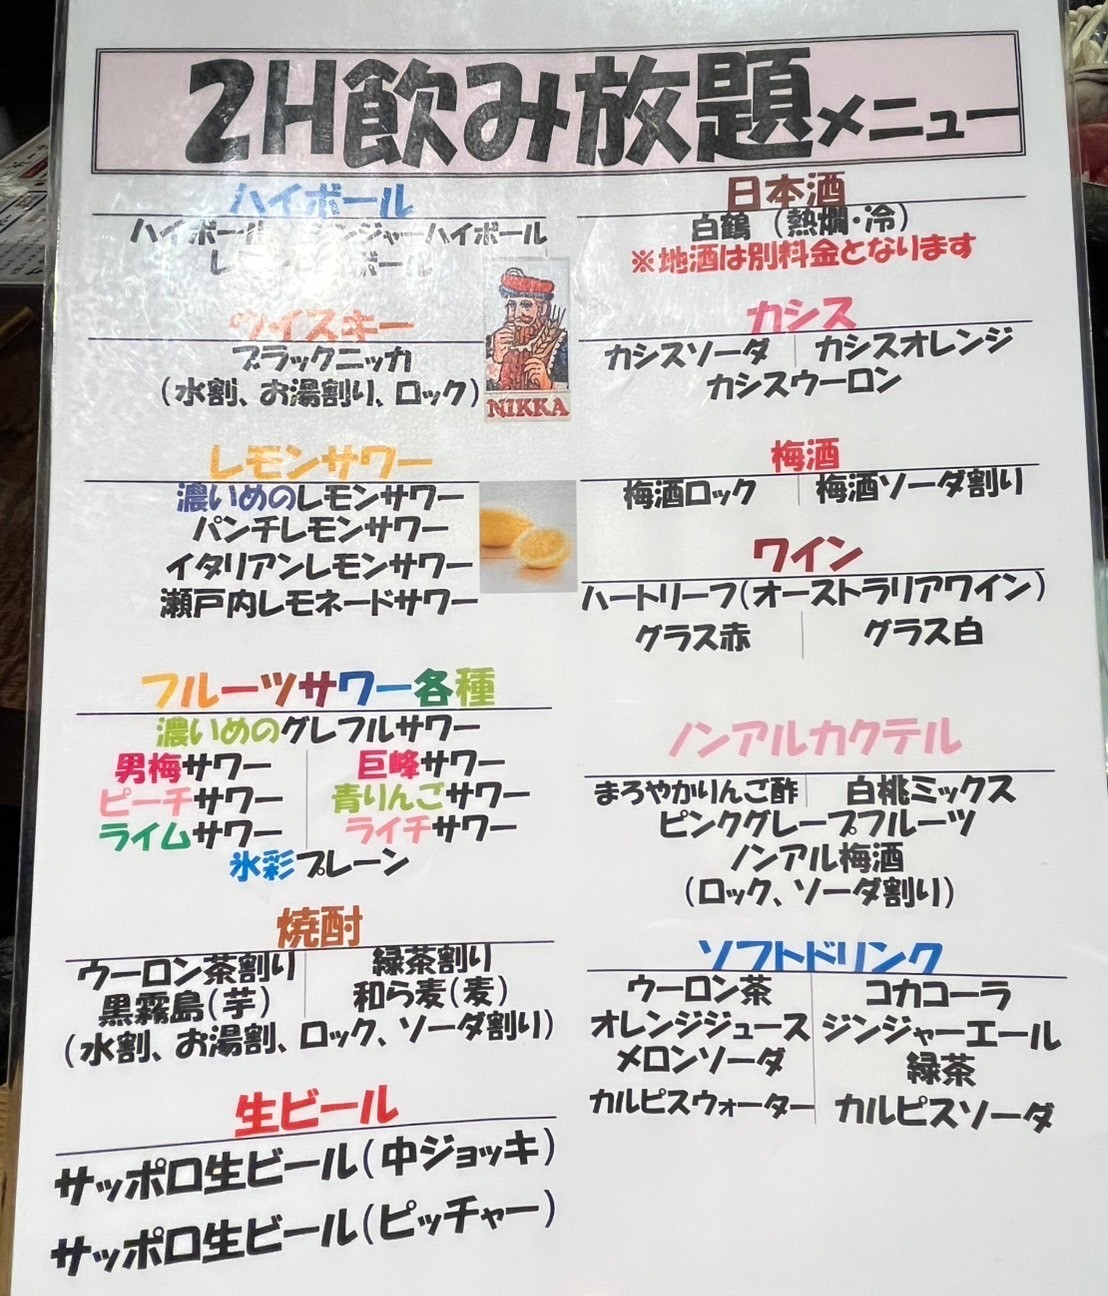 2H飲み放題メニュー
ハイボール
ハイボール ジンジャーハイボール
ボール
ウイスキー
ブラックニッカ
(水割、お湯割り、ロック)
NIKKA
レモンサワー
濃いめのレモンサワー
パンチレモンサワー
イタリアンレモンサワー
瀬戸内レモネードサワー
フルーツサワー各種
濃いめのグレフルサワー
男梅サワー 巨峰サワー
ピーチサワー 青りんごサワー
ライムサワー ライチサワー
氷彩プレーン
焼酎
ウーロン茶割り 緑茶割り
黒霧島(芋) 和ら麦(麦)
(水割、お湯割、ロック、ソーダ割り)
生ビール
サッポロ生ビール(中ジョッキ)
サッポロ生ビール(ピッチャー)
日本酒
白鶴 (熱燗・冷)
※地酒は別料金となります
カシス
カシスソーダ カシスオレンジ
カシスウーロン
梅酒
梅酒ロック 梅酒ソーダ割り
ワイン
ハートリーフ(オーストラリアワイン)
グラス赤 グラス白
ノンアルカクテル
まろやかりんご酢 白桃ミックス
ピンクグレープフルーツ
ノンアル梅酒
(ロック、ソーダ割り)
ソフトドリンク
ウーロン茶 コカコーラ
オレンジジュース ジンジャーエール
メロンソーダ 緑茶
カルピスウォーター カルピスソーダ